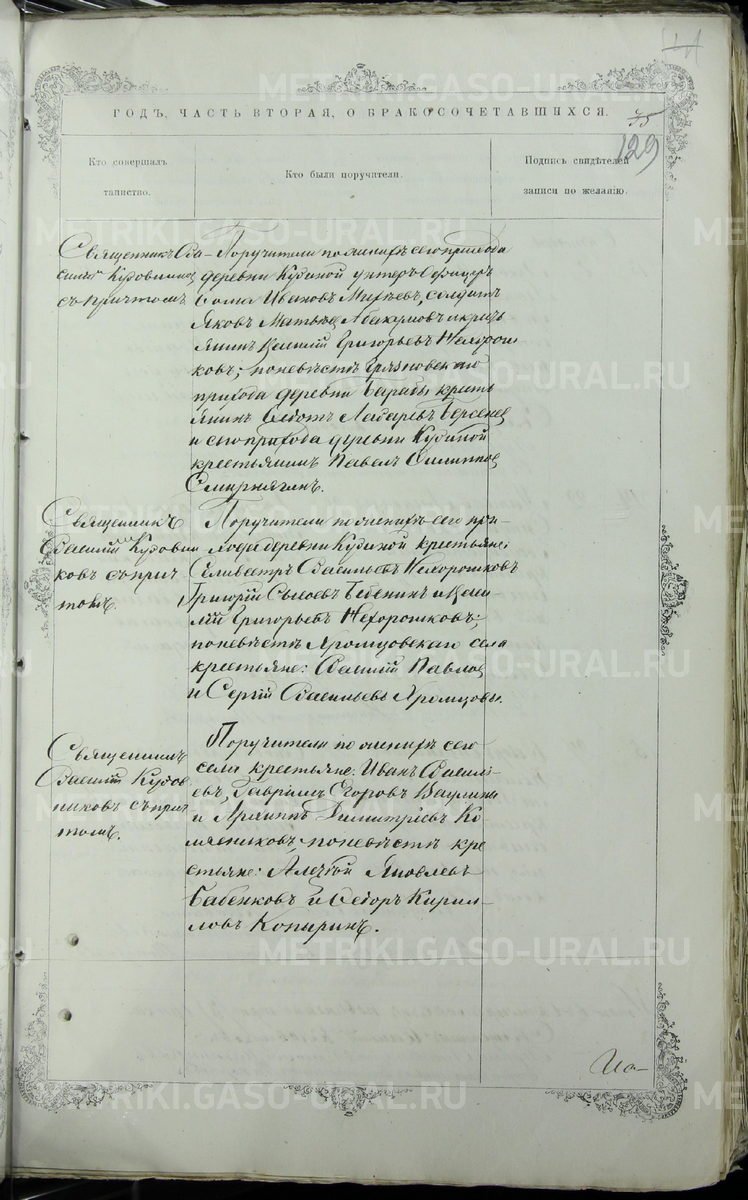 35
129
ГОДЪ, ЧАСТЬ ВТОРАЯ, О БРАКОСОЧЕТАВШИХСЯ.
Кто совершалъ
таинство.
Кто были поручители.
Подпись свидѣтелей
записи по желанію.
Священникъ Ва-
силій Кузовниковъ
съ причтомъ
Поручители по женихѣ сего прихода
деревни Кудиной унтеръ Офицеръ
Ѳома Ивановъ Михѣевъ, солдатъ
Яковъ Матвѣевъ Абакумовъ и кресть
янинъ Василій Григорьевъ Нехорош
ковъ; по невѣстѣ Грязновскаго
прихода деревни Барабы кресть
янинъ Ѳедотъ Лазаревъ Берсенев
и сего прихода деревни Кудиной
крестьянинъ Павелъ Филиппов
Смирнягинъ.
Священникъ
Василій Кузовни
ковъ съ прич
томъ.
Поручители по женихѣ сего при-
хода деревни Кудиной крестьяне:
Селиверстръ Васильевъ Нехорошковъ
Григорій Сысоевъ Бабенинъ и Васи
лій Григорьевъ Нехорошковъ;
по невѣстѣ Яромцовскаго села
крестьяне: Василій Павлов
и Сергій Васильевъ Яромцовы.
Священникъ
Василій Кузов
никовъ съ прич
томъ.
Поручители по женихѣ сего
села крестьяне: Иванъ Василь
евъ, Гавріилъ Егоровъ Ваулины
и Архиппъ Димитріевъ Ко
мястниковъ, по невѣстѣ кре
стьяне: Алексій Яковлевъ
Бабенковъ и Ѳедоръ Кирил-
ловъ Копыринъ.
METRIKI.GASO-URAL.RU